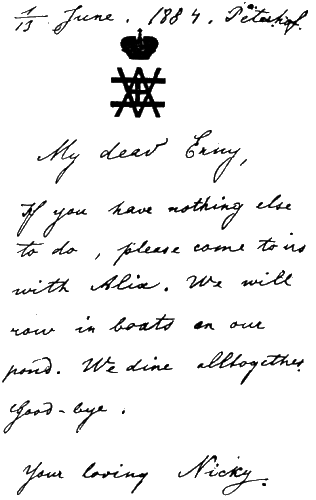 1/13 June. 1884. Peterhof.
My dear Erny,
If you have nothing else
to do, please come to us
with Alix. We will
row in boats on our
pond. We dine alltogether.
Good-bye.
Your loving Nicky.